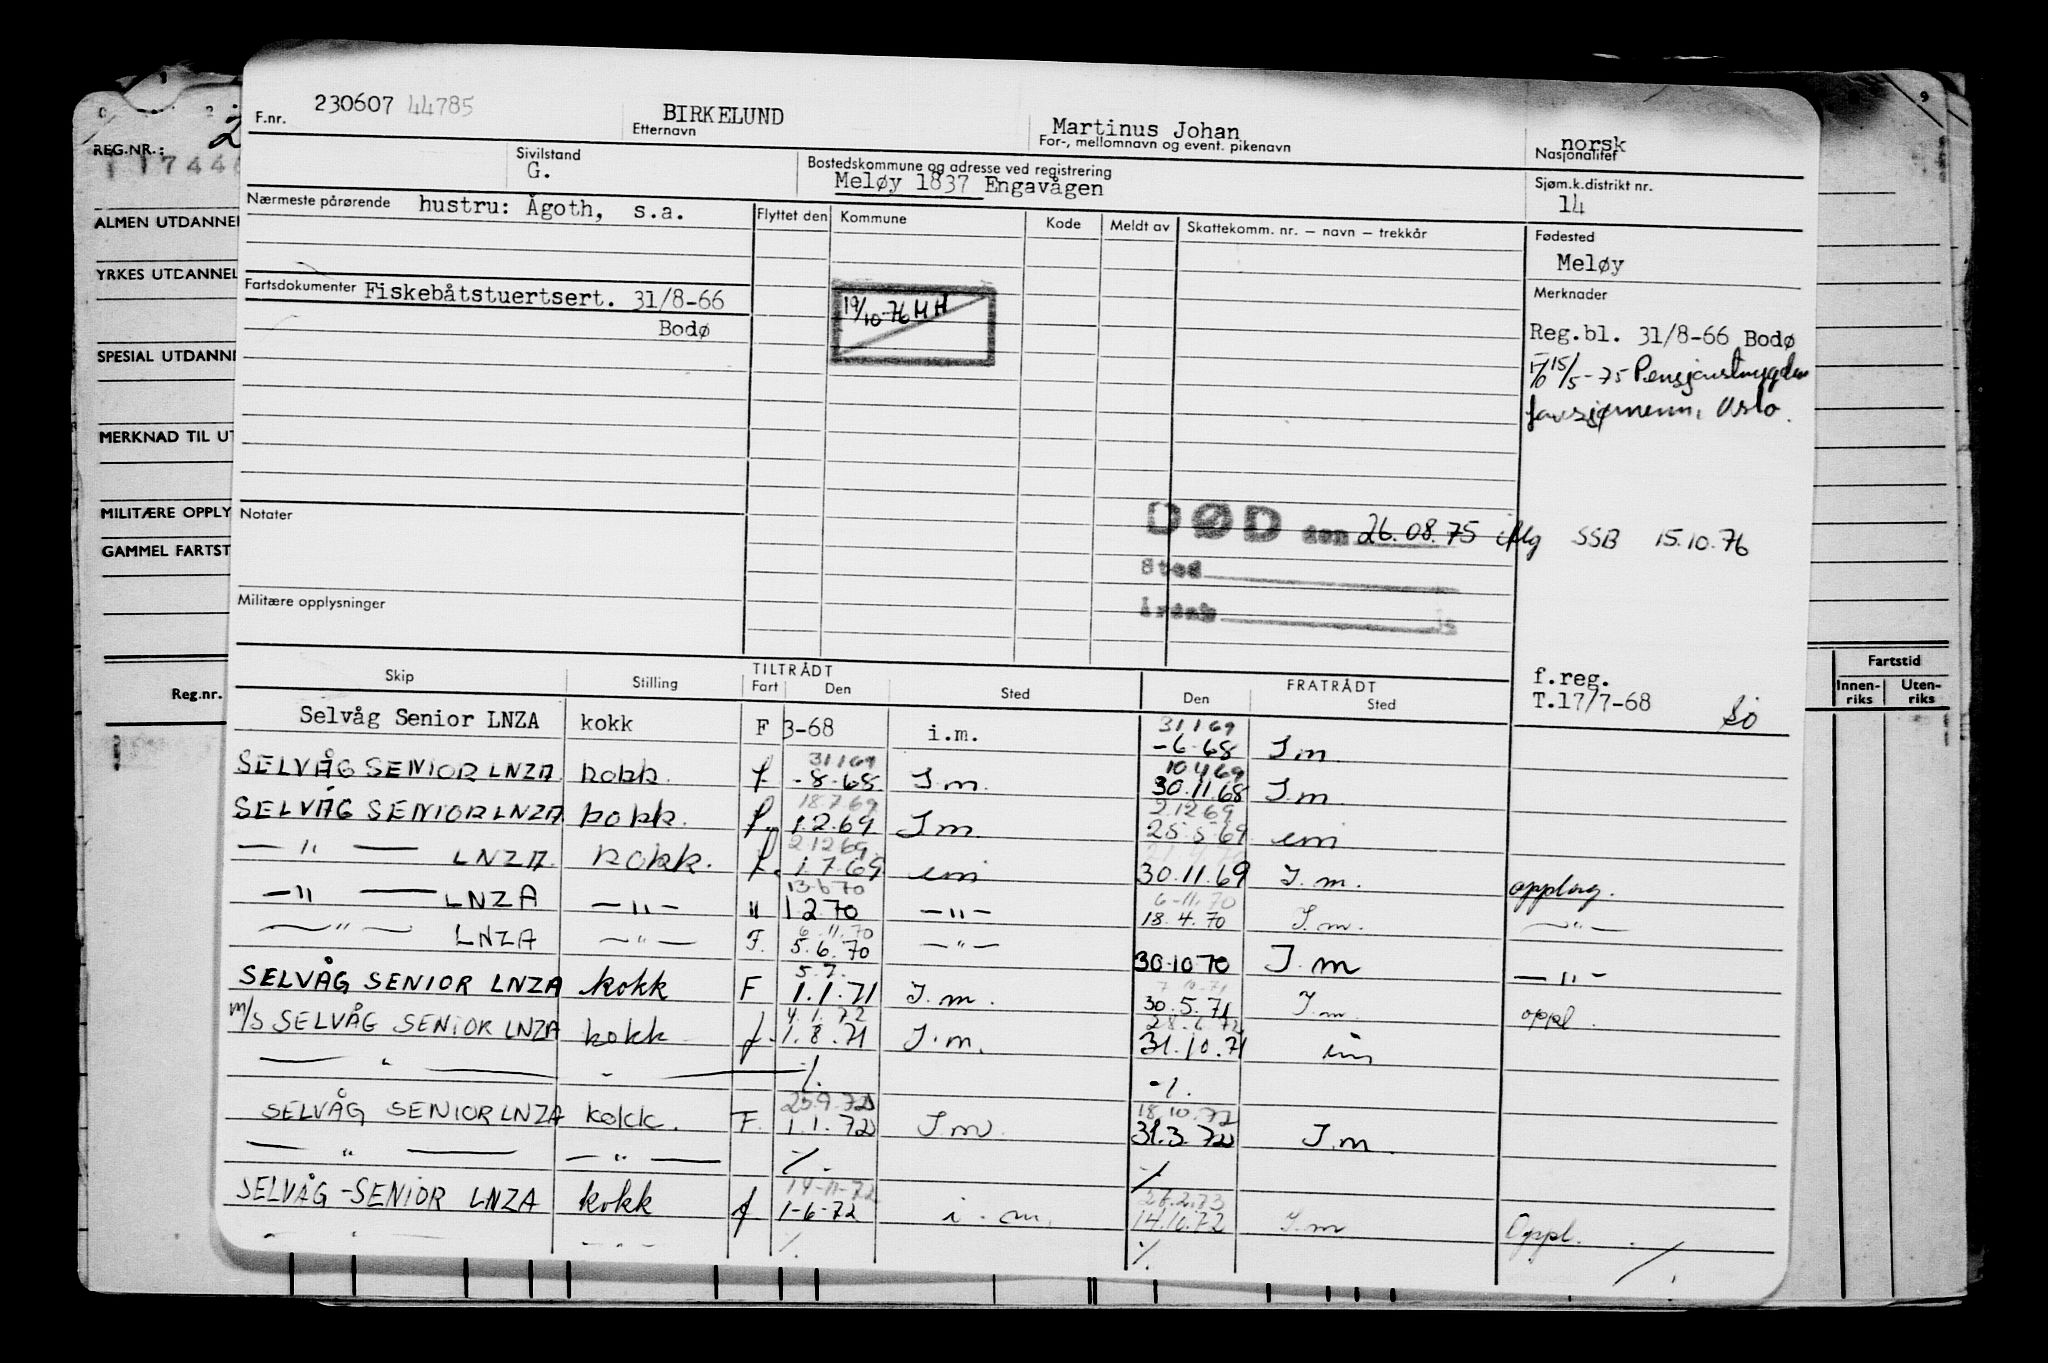 F.nr. 230607 44785 BIRKELUND Martinus Johan norsk
Etternavn For-, mellomnavn og event. pikenavn Nasjonalitet
REG.NR.:
Sivilstand Bostedskommune og adresse ved registrering Sjøm.k.distrikt nr.
G. Meløy 1837 Engavågen 14
Nærmeste pårørende hustru: Ågoth, s.a. Flyttet den Kommune Kode Meldt av Skattekomm. nr. – navn – trekkår Fødested
Meløy
ALMEN UTDANNEL
YRKES UTDANNEL
Fartsdokumenter Fiskebåtstuertsert. 31/8-66 Merknader
Bodø
19/10-76 MH
Reg.bl. 31/8-66 Bodø
15/5-75 Pensjonstrygden
for sjømenn, Oslo.
SPESIAL UTDANNE
MERKNAD TIL UT
MILITÆRE OPPLY
Notater
DØD den 26.08.75 SSB 15.10.76
GAMMEL FARTST
Sted
Militære opplysninger
f.reg.
T.17/7-68
Reg.nr. Fartstid
Innen-riks Uten-riks
Skip Stilling TILTRÅDT FRATRÅDT
Fart Den Sted Den Sted
Selvåg Senior LNZA kokk F 3-68 i.m. 31169 -6-68 I m
SELVÅG SENIOR LNZA kokk. f. 31169 -8-68 I.m. 10469 30.11.68 I.m.
SELVÅG SENIOR LNZA kokk. f. 18.7.69 1.2.69 I m 2.12.69 25.5.69 im
— " — LNZA kokk. f. 2.12.69 1.7.69 im 30.11.69 I.m. opplag.
— " — LNZA — " — " 13.6.70 1.2.70 — " — 6-11.70 18.4.70 I.m. — " —
— " — LNZA — " — F. 6.11.70 5.6.70 — " — 30.10.70 I.m — " —
SELVÅG SENIOR LNZA kokk F 5.7. 1.1.71 I.m. 30.5.71 I.m. oppl.
m/s SELVÅG SENIOR LNZA kokk f. 4.1.72 1.8.71 I.m. 28.6.72 31.10.71 im
— " — " — %. -%.
SELVÅG SENIOR LNZA kokk. F. 25.9.72 1.1.72 I m. 18.10.72 31.3.72 I.m.
— " — — " — %. %
SELVÅG -SENIOR LNZA kokk f 14-11-72 1-6-72 i.m. 26.2.73 14.10.72 I.m Oppl.
— " — — " — %. %. %.